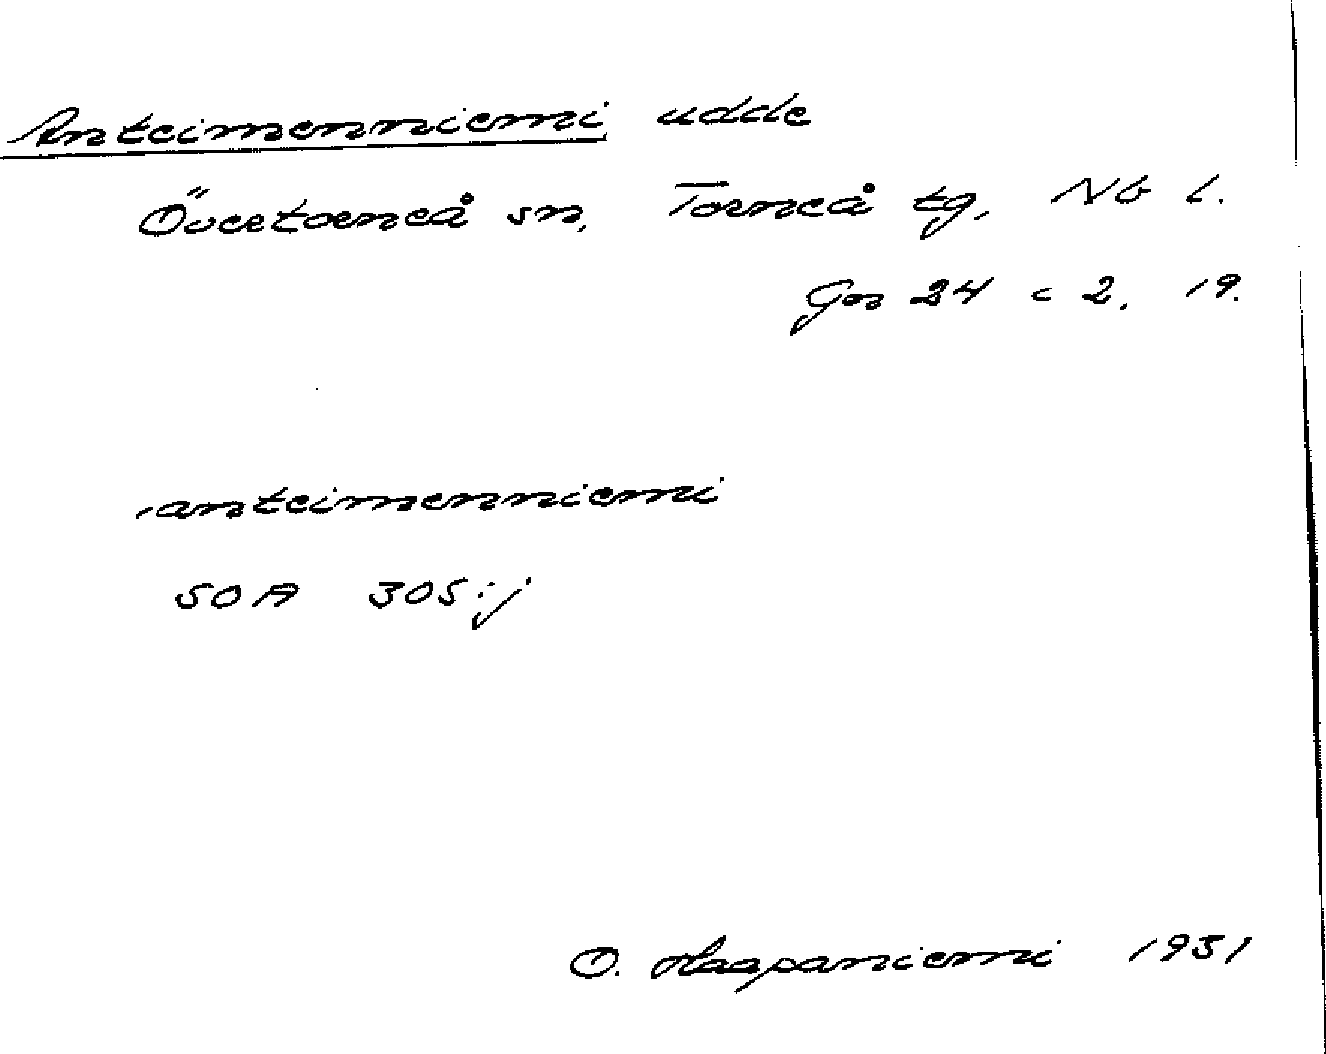 Anteimenniemi udde
Övertorneå sn, Torneå tg, Nb l.
Gn 24 c 2, 19.
ˈanteimenniemi
SOA 305:j
O. Haapaniemi 1931